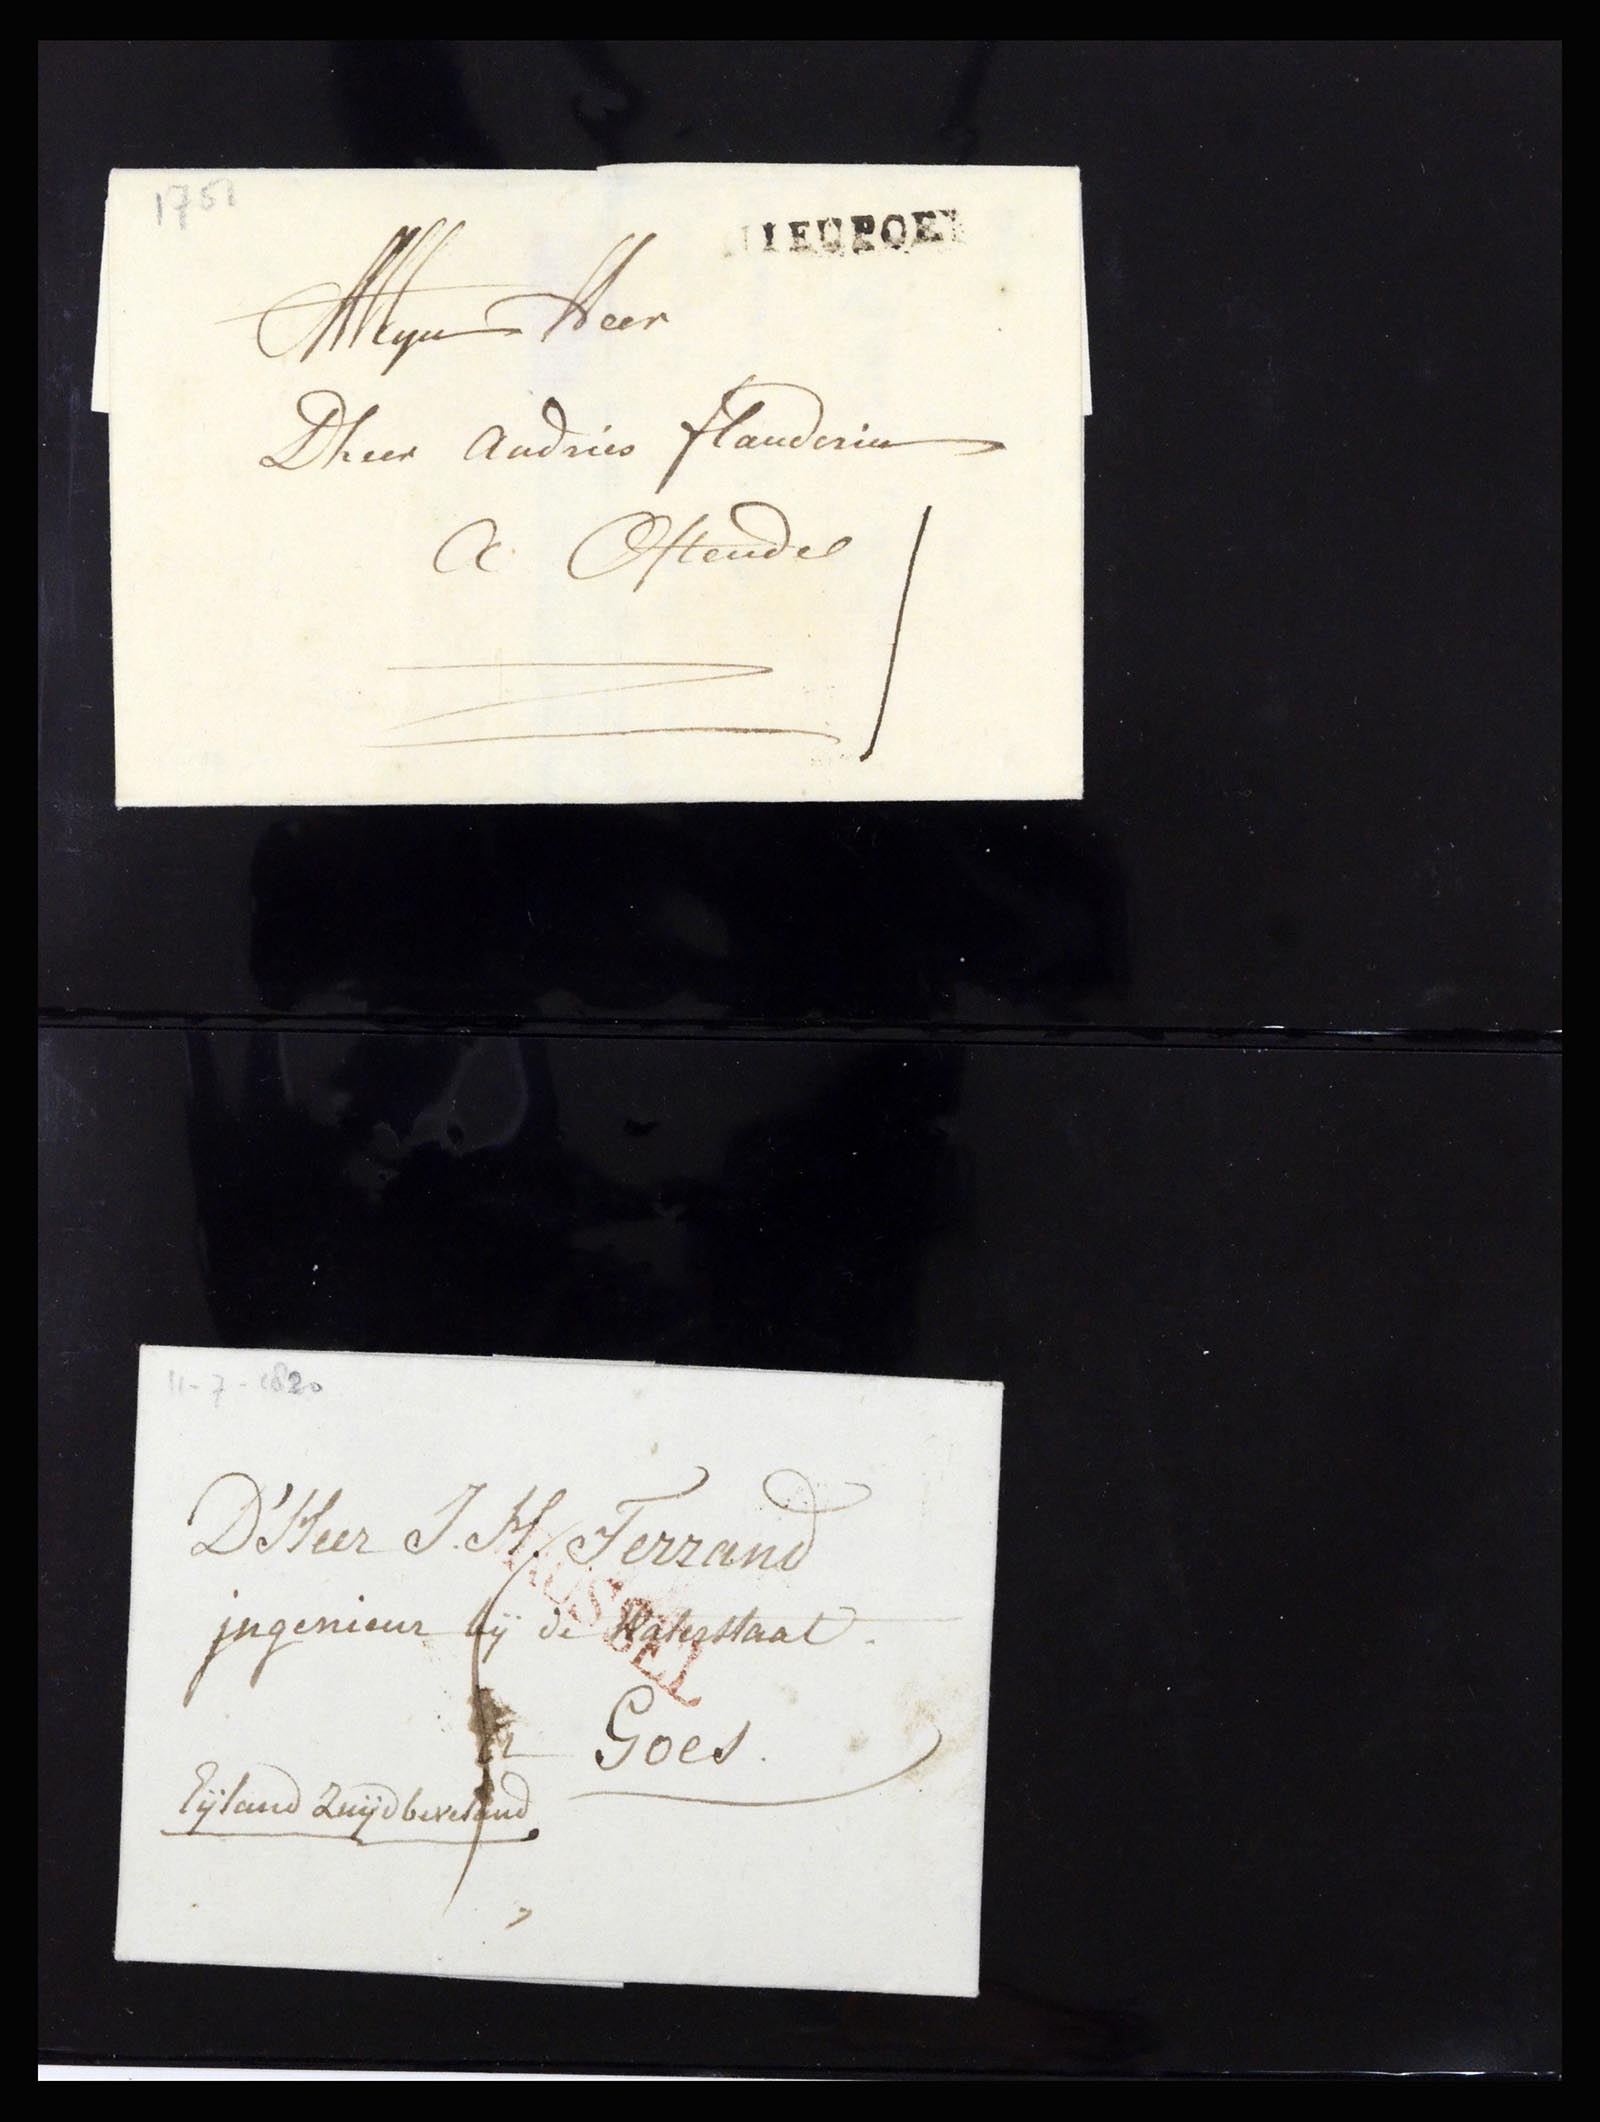 1751
NIEUPORT
Meyn Heer
Dheer Andries flanderin
A Ostende
11-7-1820
D'Heer J. H. Ferrand
jngenieur bÿ de Waterstaat
Goes.
Eÿland Zuÿdbeveland